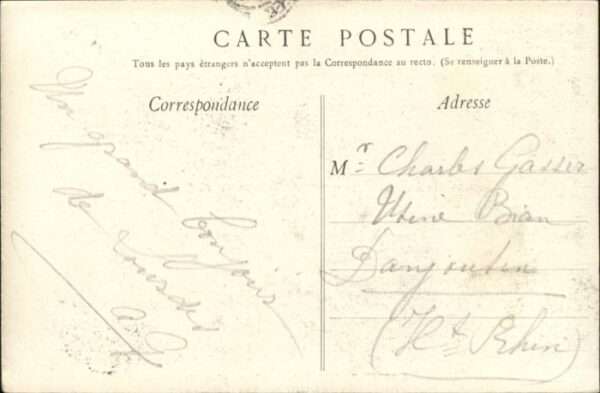 CARTE POSTALE
Tous les pays étrangers n'acceptent pas la Correspondance au recto. (Se renseigner à la Poste.)
Correspondance
Un grand bonjour
de Lourdes
Adresse
Mr Charles Gasser
Usine Bian
Danjoutin
(Ht Rhin)